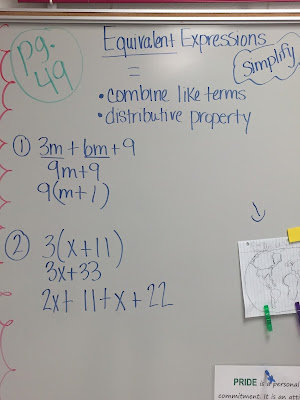 pg. 49
Equivalent Expressions
=
Simplify
• combine like terms
• distributive property
① 3m + 6m + 9
9m+9
9(m+1)
② 3(x+11)
3x+33
2x + 11 + x + 22
PRIDE is a personal
commitment. It is an atti